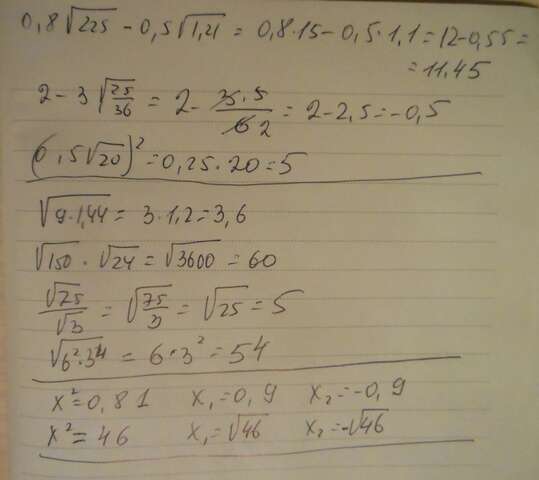 0,8√225 - 0,5√1,21 = 0,8·15 - 0,5·1,1 = 12 - 0,55 =
= 11,45
2 - 3√25/36 = 2 - 3·5/6 2 = 2 - 2,5 = -0,5
(0,5√20)² = 0,25·20 = 5
√9·1,44 = 3·1,2 = 3,6
√150 · √24 = √3600 = 60
√75/√3 = √75/3 = √25 = 5
√6²·3⁴ = 6·3² = 54
x² = 0,81 x₁ = 0,9 x₂ = -0,9
x² = 46 x₁ = √46 x₂ = -√46